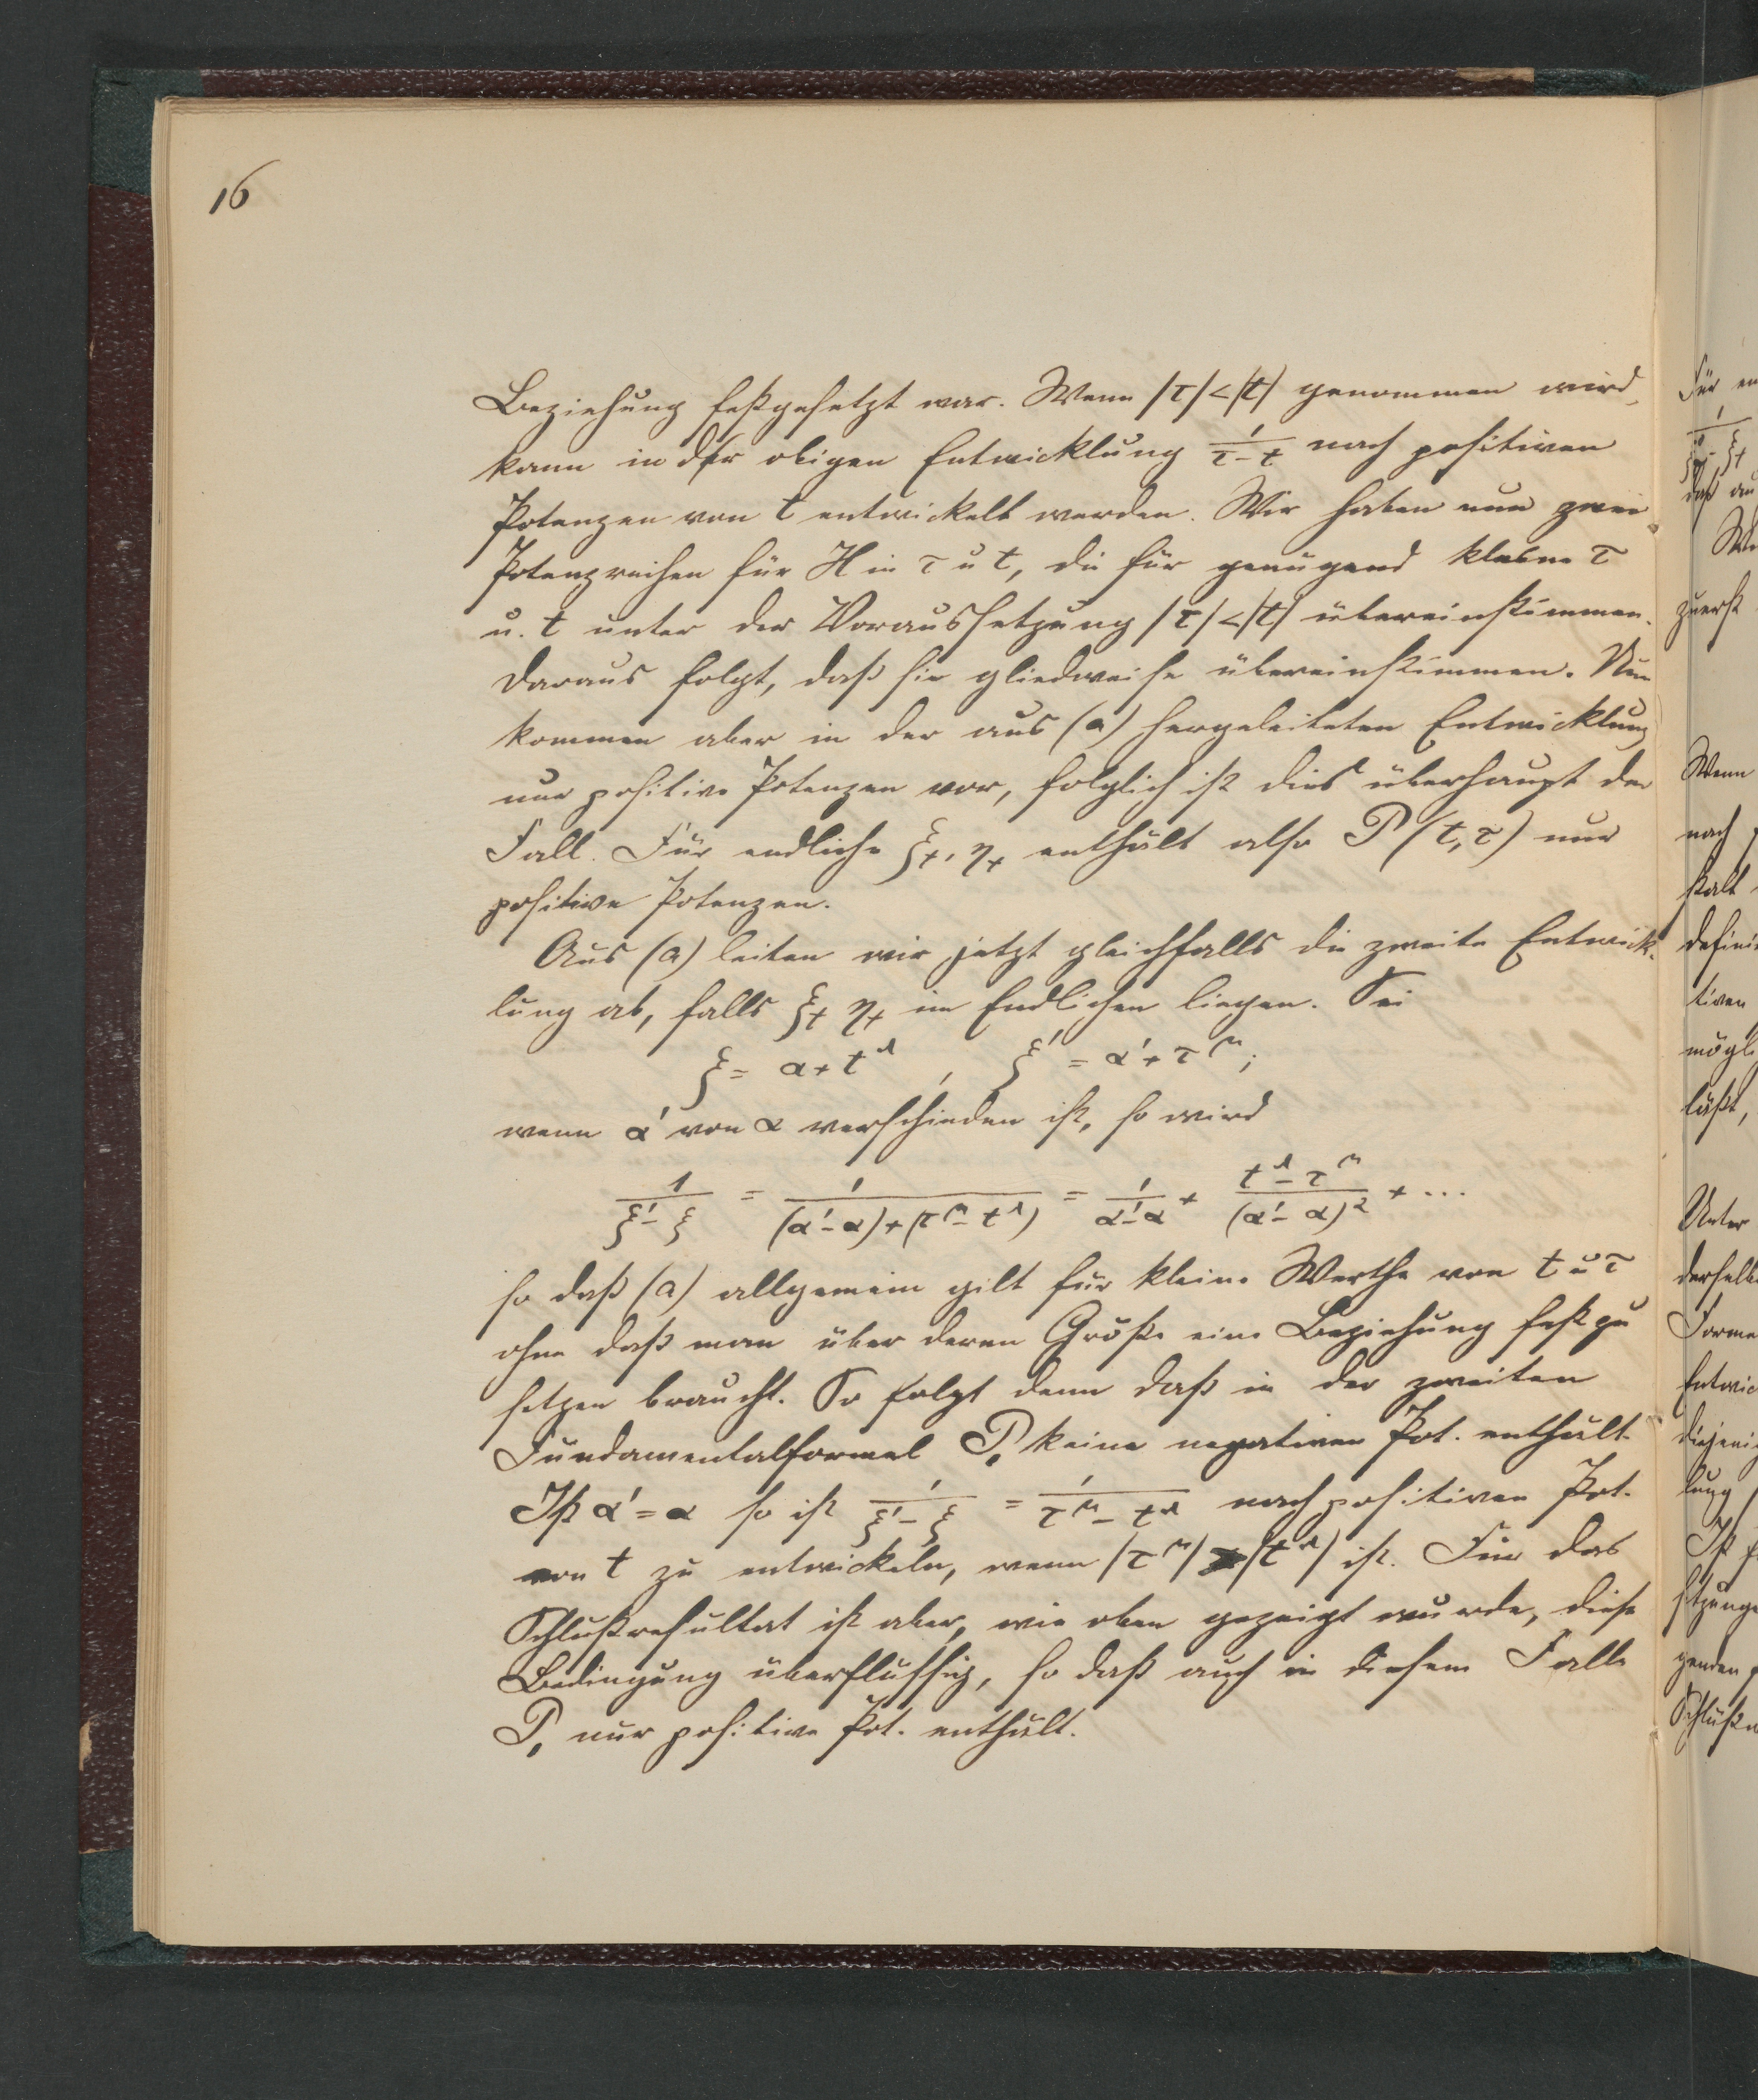 16
Beziehung festgesetzt war. Wenn |τ|<|t| genommen wird,
kann in der obigen Entwicklung 1/(τ-t) nach positiven
Potenzen von t entwickelt werden. Wir haben nun zwei
Potenzreihen für H in τ u t, die für genügend kleine τ
u. t unter der Voraussetzung |τ|<|t| übereinstimmen.
Daraus folgt, daß sie gliedweise übereinstimmen. Nun
kommen aber in der aus (a) hergeleiteten Entwicklung
nur positive Potenzen vor, folglich ist dies überhaupt der
Fall. Für endliche ξₜ, ηₜ enthält also P(t,τ) nur
positive Potenzen.
Aus (a) leiten wir jetzt gleichfalls die zweite Entwick-
lung ab, falls ξₜ ηₜ im Endlichen liegen. Sei
ξ = α + t^λ, ξ' = α' + τ^μ;
wenn α' von α verschieden ist, so wird
1/(ξ'-ξ) = 1/((α'-α)+(τ^μ-t^λ)) = 1/(α'-α) + (t^λ-τ^μ)/(α'-α)² + ...
so daß (a) allgemein gilt für kleine Werthe von t u τ
ohne daß man über deren Größe eine Beziehung fest zu
setzen braucht. So folgt denn daß in der zweiten
Fundamentalformel P₁ keine negativen Pot. enthält.
Ist α'=α so ist 1/(ξ'-ξ) = 1/(τ^μ-t^λ) nach positiven Pot.
von t zu entwickeln, wenn |τ^μ| |t^λ| ist. Für das
Schlußresultat ist aber, wie oben gezeigt wurde, diese
Bedingung überflüssig, so daß auch in diesem Falle
P₁ nur positive Pot. enthält.
Für
daß
zuerst
Wenn
nach
stalt
läßt,
Unter